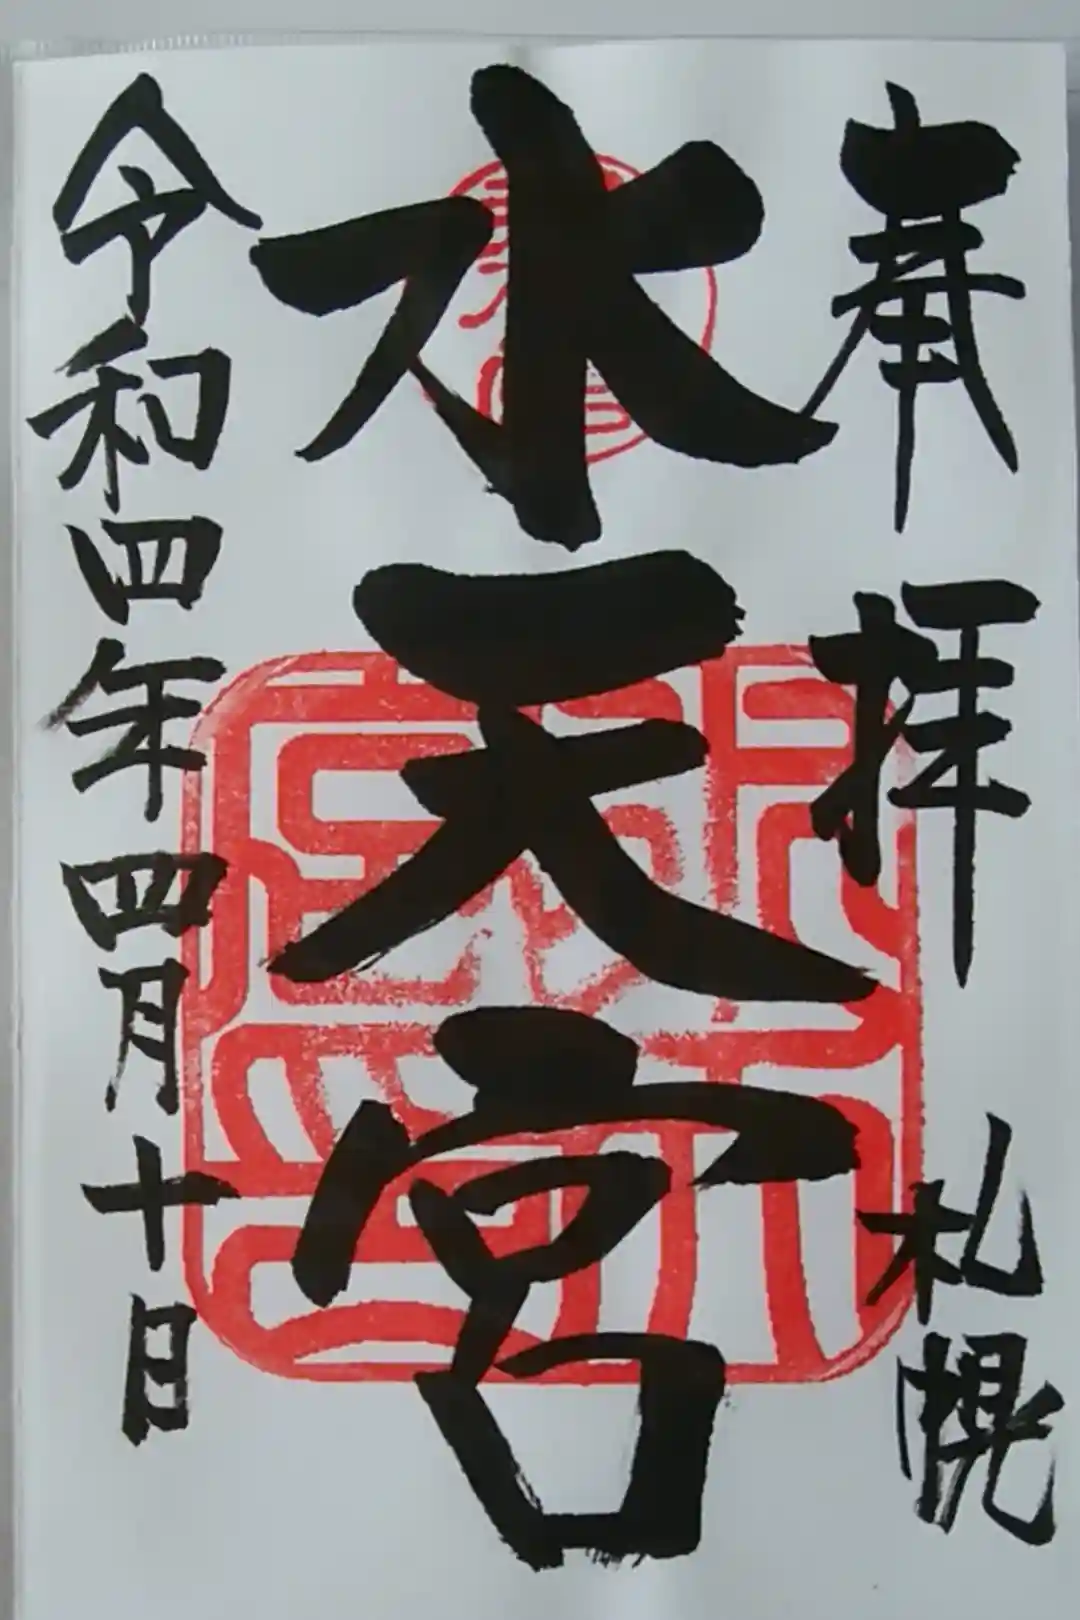 奉拝 札幌
水天宮
令和四年四月十日